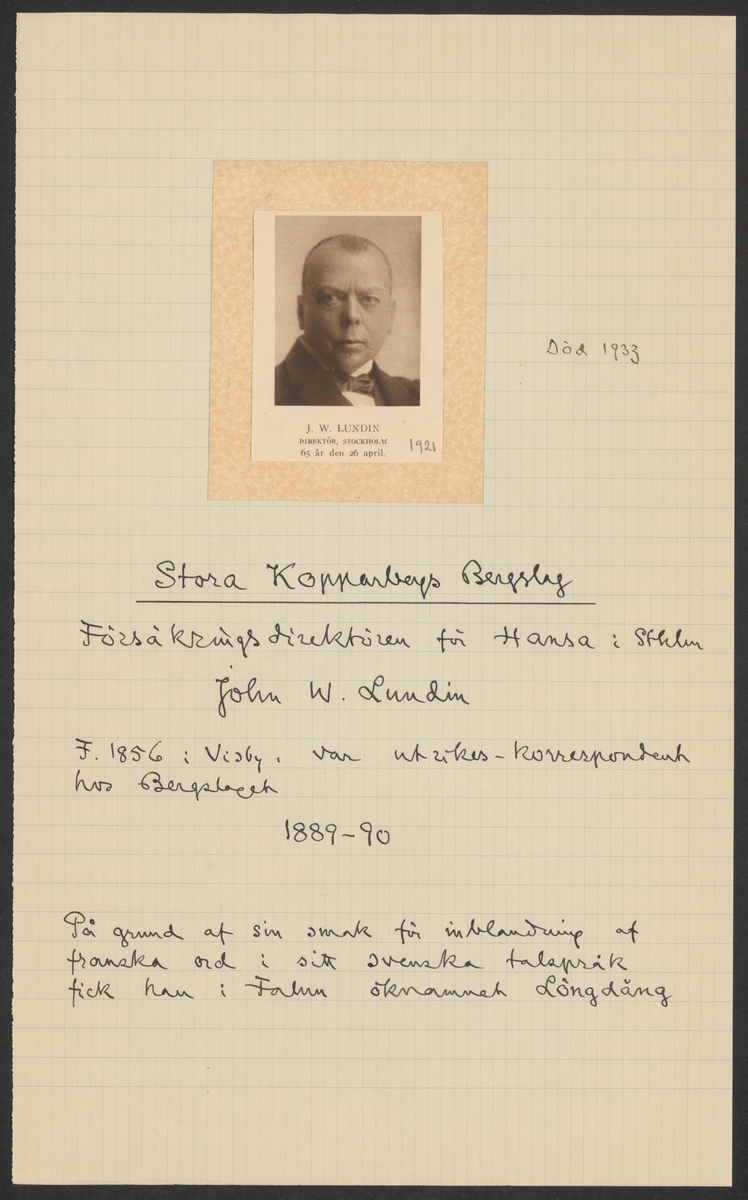 Död 1933
J. W. LUNDIN
DIREKTÖR, STOCKHOLM
65 år den 26 april.
1921
Stora Kopparbergs Bergslag
Försäkringsdirektören för Hansa i Sthlm
John W. Lundin
F. 1856 i Visby, var utrikes-korrespondent
hos Bergslaget
1889-90
På grund af sin smak för inblandning af
franska ord i sitt svenska talspråk
fick han i Falun öknamnet Löngdäng